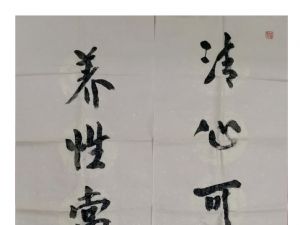 清心可
养性常